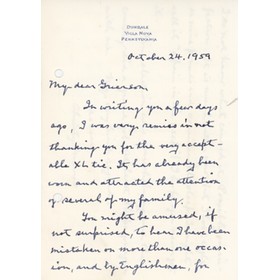 VILLA NOVA
PENNSYLVANIA
October 24, 1959
My dear Grierson,
In writing you a few days
ago, I was very remiss in not
thanking you for the very accept-
able XL tie. It has already been
worn and attracted the attention
of several of my family.
You might be amused, if
not surprised, to hear I have been
mistaken on more than one occas-
ion, and by Englishmen, for